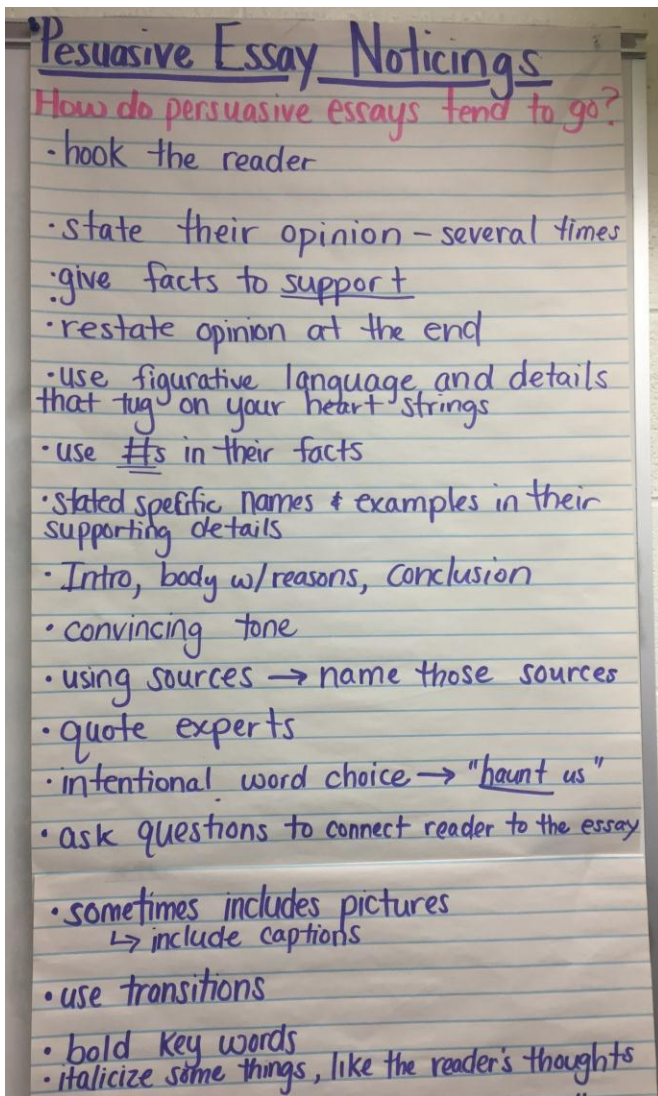 Pesuasive Essay Noticings
How do persuasive essays tend to go?
· hook the reader
· state their opinion – several times
· give facts to support
· restate opinion at the end
· use figurative language and details
that tug on your heart strings
· use #s in their facts
· stated speific names & examples in their
supporting details
· Intro, body w/reasons, conclusion
· convincing tone
· using sources → name those sources
· quote experts
· intentional word choice → "haunt us"
· ask questions to connect reader to the essay
· sometimes includes pictures
↳ include captions
· use transitions
· bold key words
· italicize some things, like the reader's thoughts